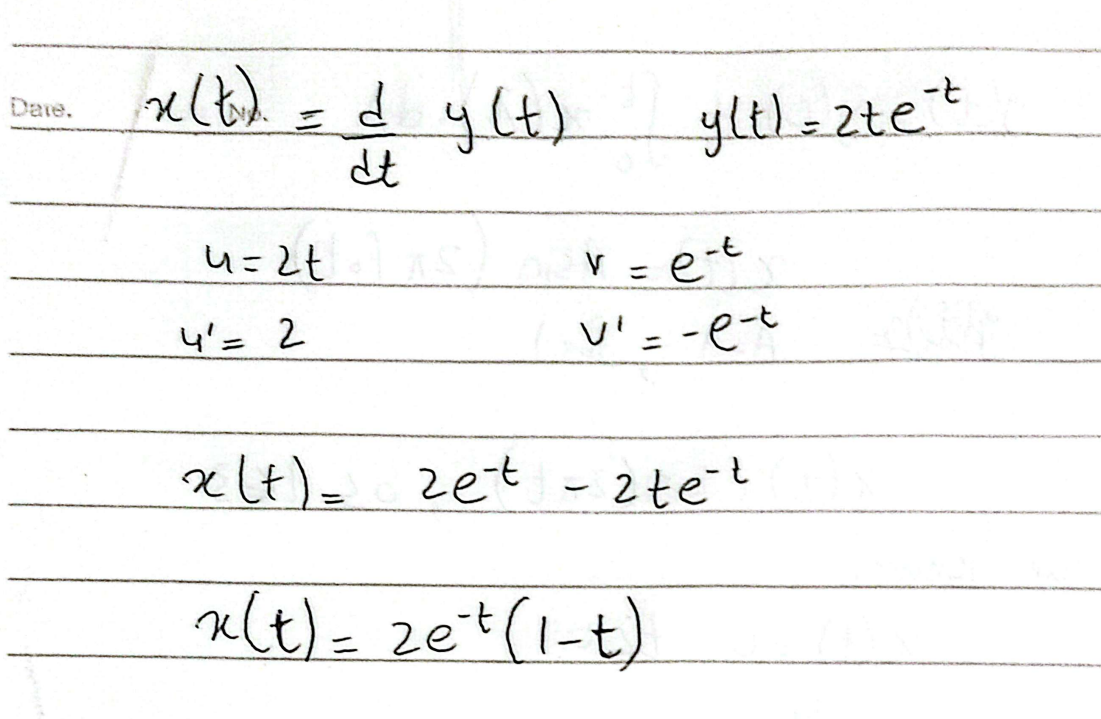 Date. No.
x(t) = d/dt y(t) y(t) = 2te^-t
u = 2t v = e^-t
u' = 2 v' = -e^-t
x(t) = 2e^-t - 2te^-t
x(t) = 2e^-t (1-t)